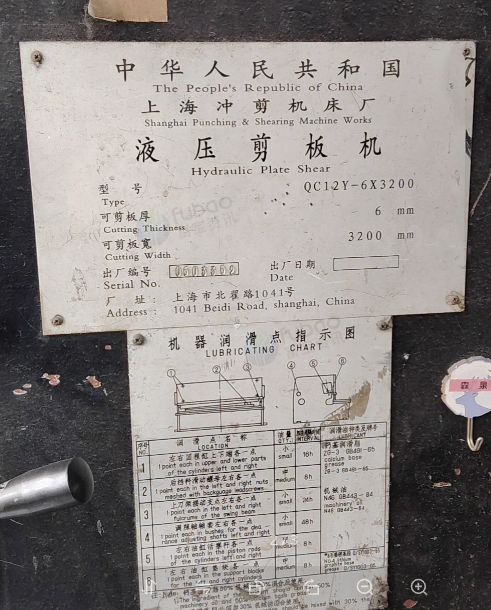 中华人民共和国
The People's Republic of China
上海冲剪机床厂
Shanghai Punching & Shearing Machine Works
液压剪板机
Hydraulic Plate Shear
型号 QC12Y-6X3200
Type
可剪板厚 6 mm
Cutting Thickness
可剪板宽 3200 mm
Cutting Width
出厂编号 出厂日期
Serial No. Date
厂址: 上海市北翟路1041号
Address: 1041 Beidi Road, shanghai, China
机器润滑点指示图
LUBRICATING CHART
1 2 3 4 5 6
序号 NO. 润滑点名称 LOCATION 油量 QTY. INTERVAL LUBRICANT
1 左右回程缸上下端各一点 小 small 16h
1 point each in upper and lower parts
of the cylinders left and right
2 后挡料滑动螺母左右各一点 中 medium 8h
1 point each in the left and right nuts
meshed with backgauge leadscrews
3 上刀架摆动支点左右各一点 小 small 24h
1 point each in the left and right
fulcrums of the swing beam
4 调隙轴轴套左右各一点 小 small 48h
1 point each in bushes for the
adjusting shafts left and right
5 左右油缸活塞杆各一点 中 medium 8h
1 point each in the piston rods
of the cylinders left and right
左右油缸垫块各一点 中 medium 8h
1 point each in the support blocks
for the left and right cylinders
ZG-3 GB491-65
calcium base
grease
机械油
N46 GB443-84
machinery oil
N46 GB443-84
森泉